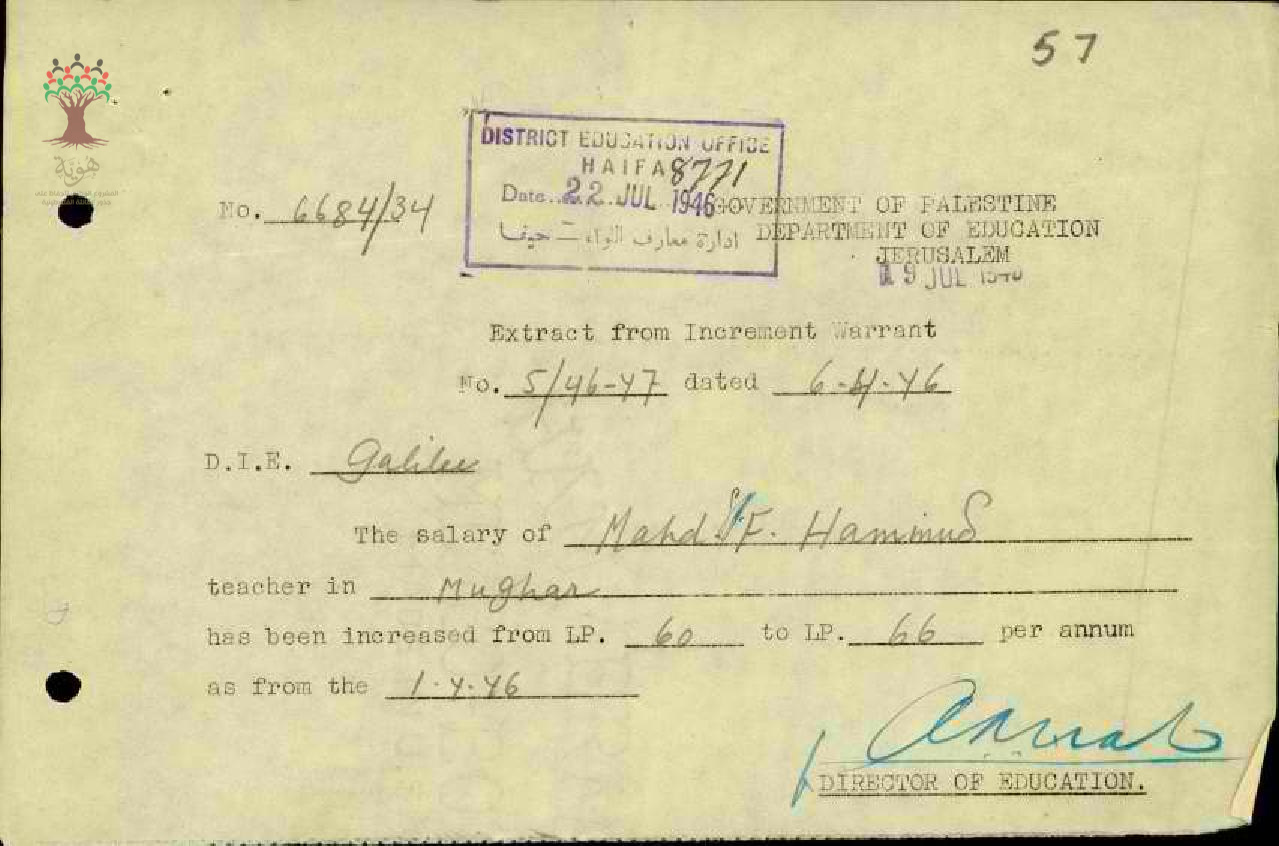 57
هوية
DISTRICT EDUCATION OFFICE
HAIFA 8771
Date... 22 JUL 1946
ادارة معارف اللواء – حيفا
No. 6684/34
GOVERNMENT OF PALESTINE
DEPARTMENT OF EDUCATION
JERUSALEM
19 JUL 1946
Extract from Increment Warrant
No. 5/46-47 dated 6-4-46
D.I.E. Galilee
The salary of Mahd F. Hammud
teacher in Mughar
has been increased from LP. 60 to LP. 66 per annum
as from the 1.4.46
DIRECTOR OF EDUCATION.